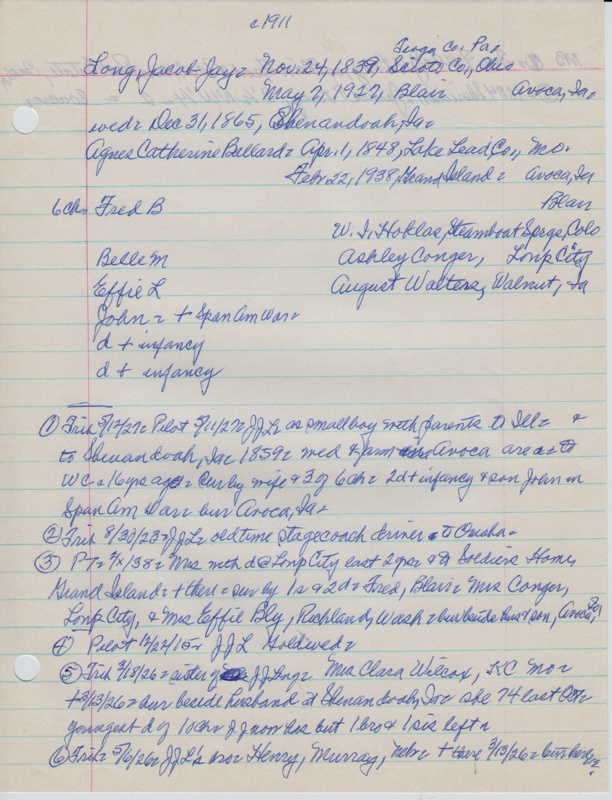 c1911
Tioga Co. Pa.
Long, Jacob Jay = Nov. 24, 1839, Scioto Co., Ohio
May 7, 1927, Blair Avoca, Ia.
wed = Dec 31, 1865, Shenandoah, Ia =
Agnes Catherine Ballard = Apr. 1, 1848, Lake Lead, Co., Mo.
Feb. 22, 1938, Grand Island = Avoca, Ia
6 ch = Fred B Blair
W. I. Hoklas, Steamboat Sprgs, Colo
Belle M Ashley Conger, Loup City
Effie L August Walters, Walnut, Ia
John = + Span Am War =
d + infancy
d + infancy
① Trib 5/12/27 = Pilot 5/11/27 = JJL as small boy with parents to Ill = &
to Shenandoah, Ia = 1859 = wed & farm Avoca area = to
WC = 16 yrs ago = sur by wife & 3 of 6 ch = 2 d + infancy & son John in
Span Am War = bur Avoca, Ia =
② Trib 8/30/23 = JJL = old time stagecoach driver to Omaha =
③ PT = 3/x/38 = Mrs with d @ Loup City last 2 yrs & at Soldiers Home,
Grand Island = + there = sur by 1 s & 2 d = Fred, Blair = Mrs Conger,
Loup City, & Mrs Effie Bly, Richland, Wash = bur beside hus & son, Avoca, Ia
④ Pilot 12/22/15 = JJL Gold wed =
⑤ Trib 3/18/26 = sister of JJ Long = Mrs Clara Wilcox, KC Mo =
+ 3/13/26 = bur beside husband at Shenandoah, Ia = she 74 last Oct =
youngest d of 10 ch = JJ now has but 1 bro & 1 sis left =
⑥ Trib = 5/6/26 = JJL's bro = Henry, Murray, Nebr = + there 3/13/26 = bur